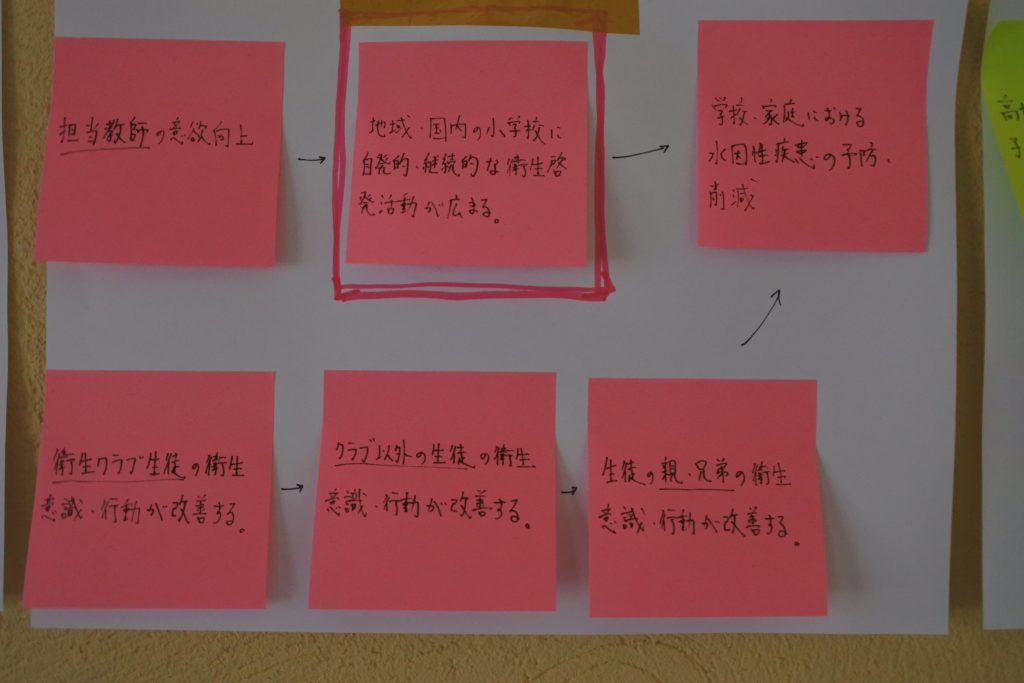 担当教師の意欲向上
地域・国内の小学校に
自発的、継続的な衛生啓
発活動が広まる。
学校・家庭における
水因性疾患の予防、
削減
衛生クラブ生徒の衛生
意識・行動が改善する。
クラブ以外の生徒の衛生
意識・行動が改善する。
生徒の親・兄弟の衛生
意識・行動が改善する。
高
子